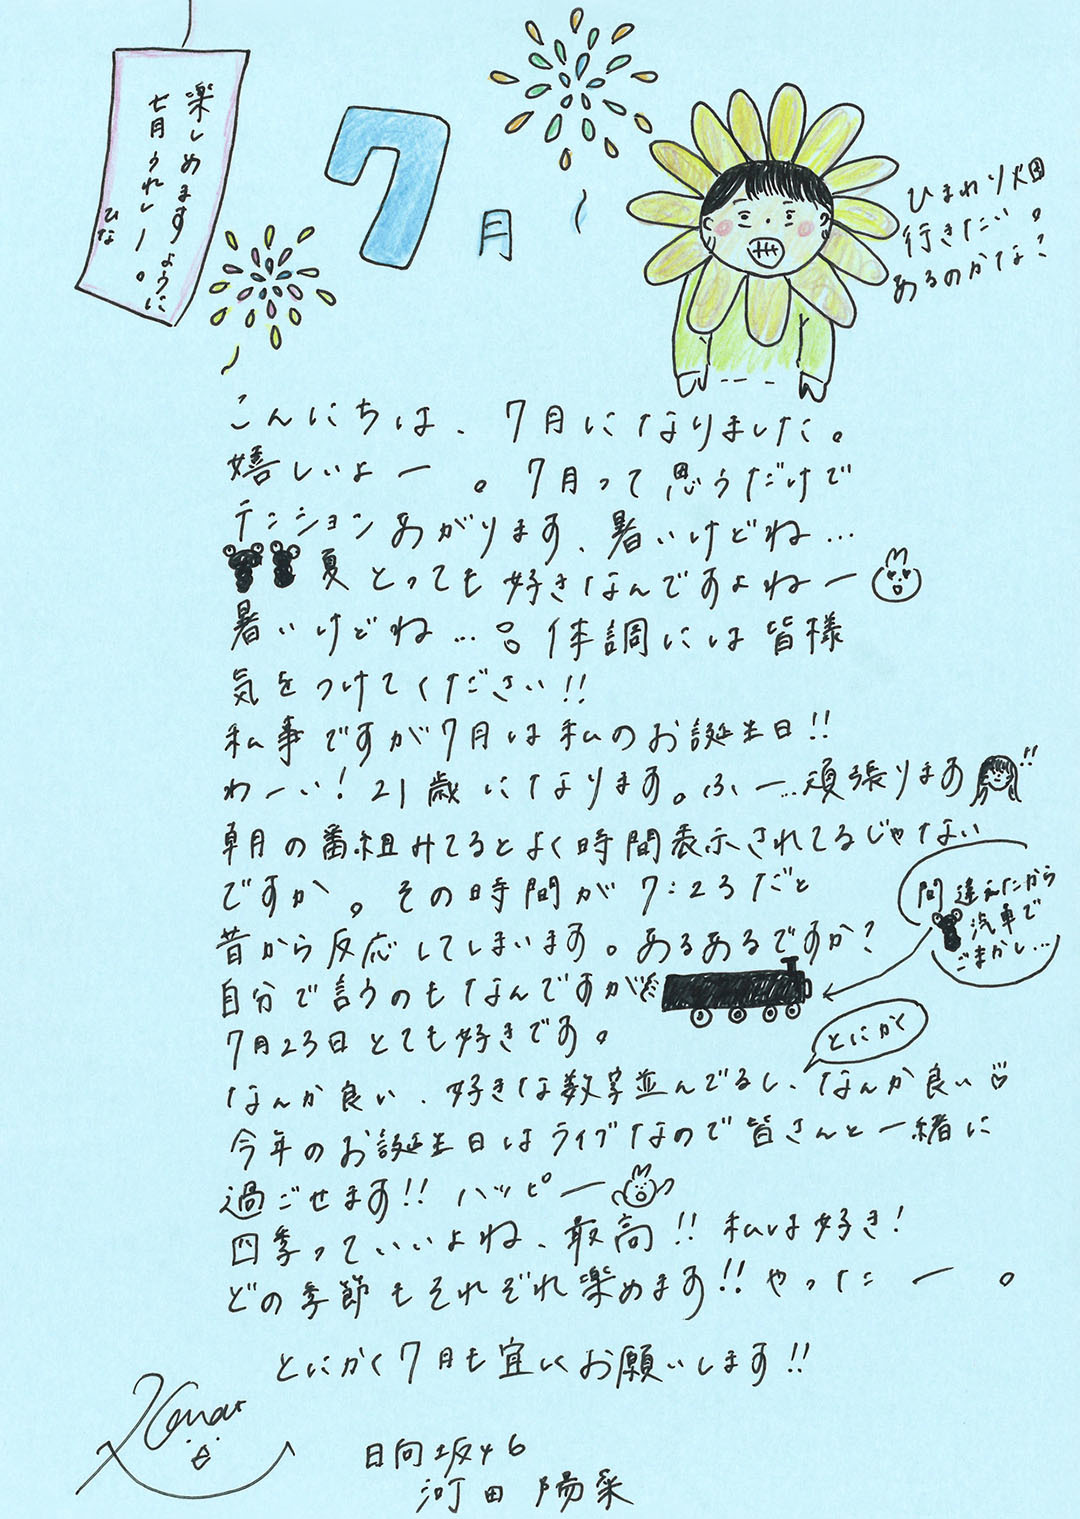 楽しめますように
七月うれしー。
ひな
7月
ひまわり畑
行きたい。
あるのかな?
こんにちは、7月になりました。
嬉しいよー。7月って思うだけで
テンションあがります、暑いけどね…
夏とっても好きなんですよねー
暑いけどね…。体調には皆様
気をつけてください!!
私事ですが7月は私のお誕生日!!
わーい!21歳になります。ふー…頑張ります!!
朝の番組みてるとよく時間表示されてるじゃない
ですか。その時間が7:23だと
昔から反応してしまいます。あるあるですか?
間違えたから
汽車で
ごまかし…
自分で言うのもなんですが
7月23日とても好きです。
とにかく
なんか良い、好きな数字並んでるし、なんか良い♡
今年のお誕生日はライブなので皆さんと一緒に
過ごせます!!ハッピー
四季っていいよね、最高!!私は好き!
どの季節もそれぞれ楽めます!!やったー。
とにかく7月も宜しくお願いします!!
日向坂46
河田陽菜